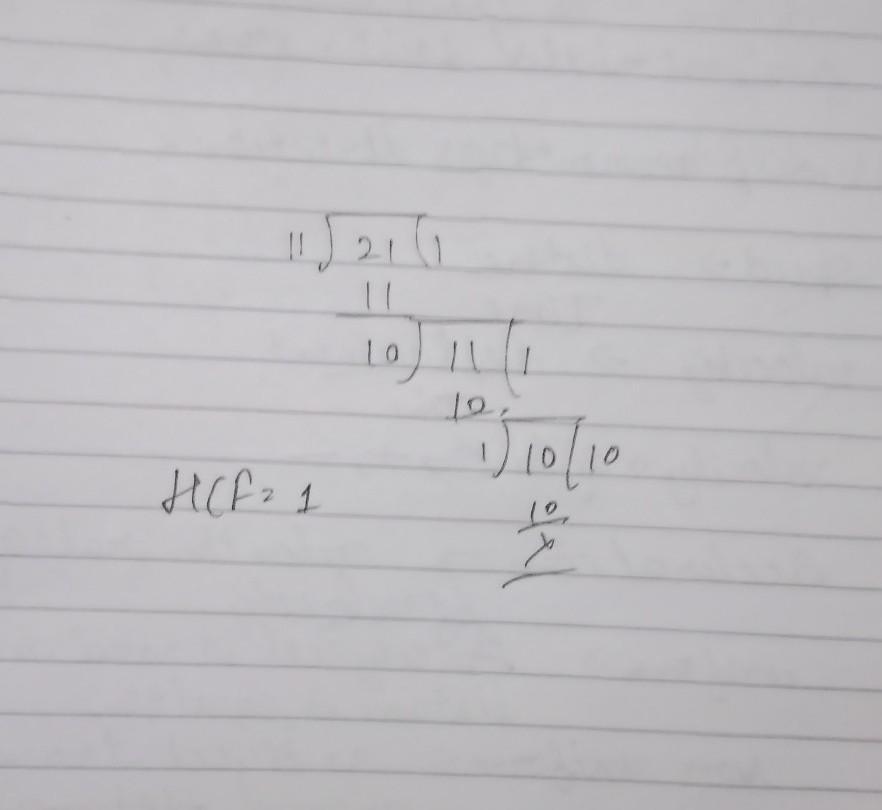 11) 21 (1
11
10) 11 (1
10
1) 10 (10
HCF = 1
10
x